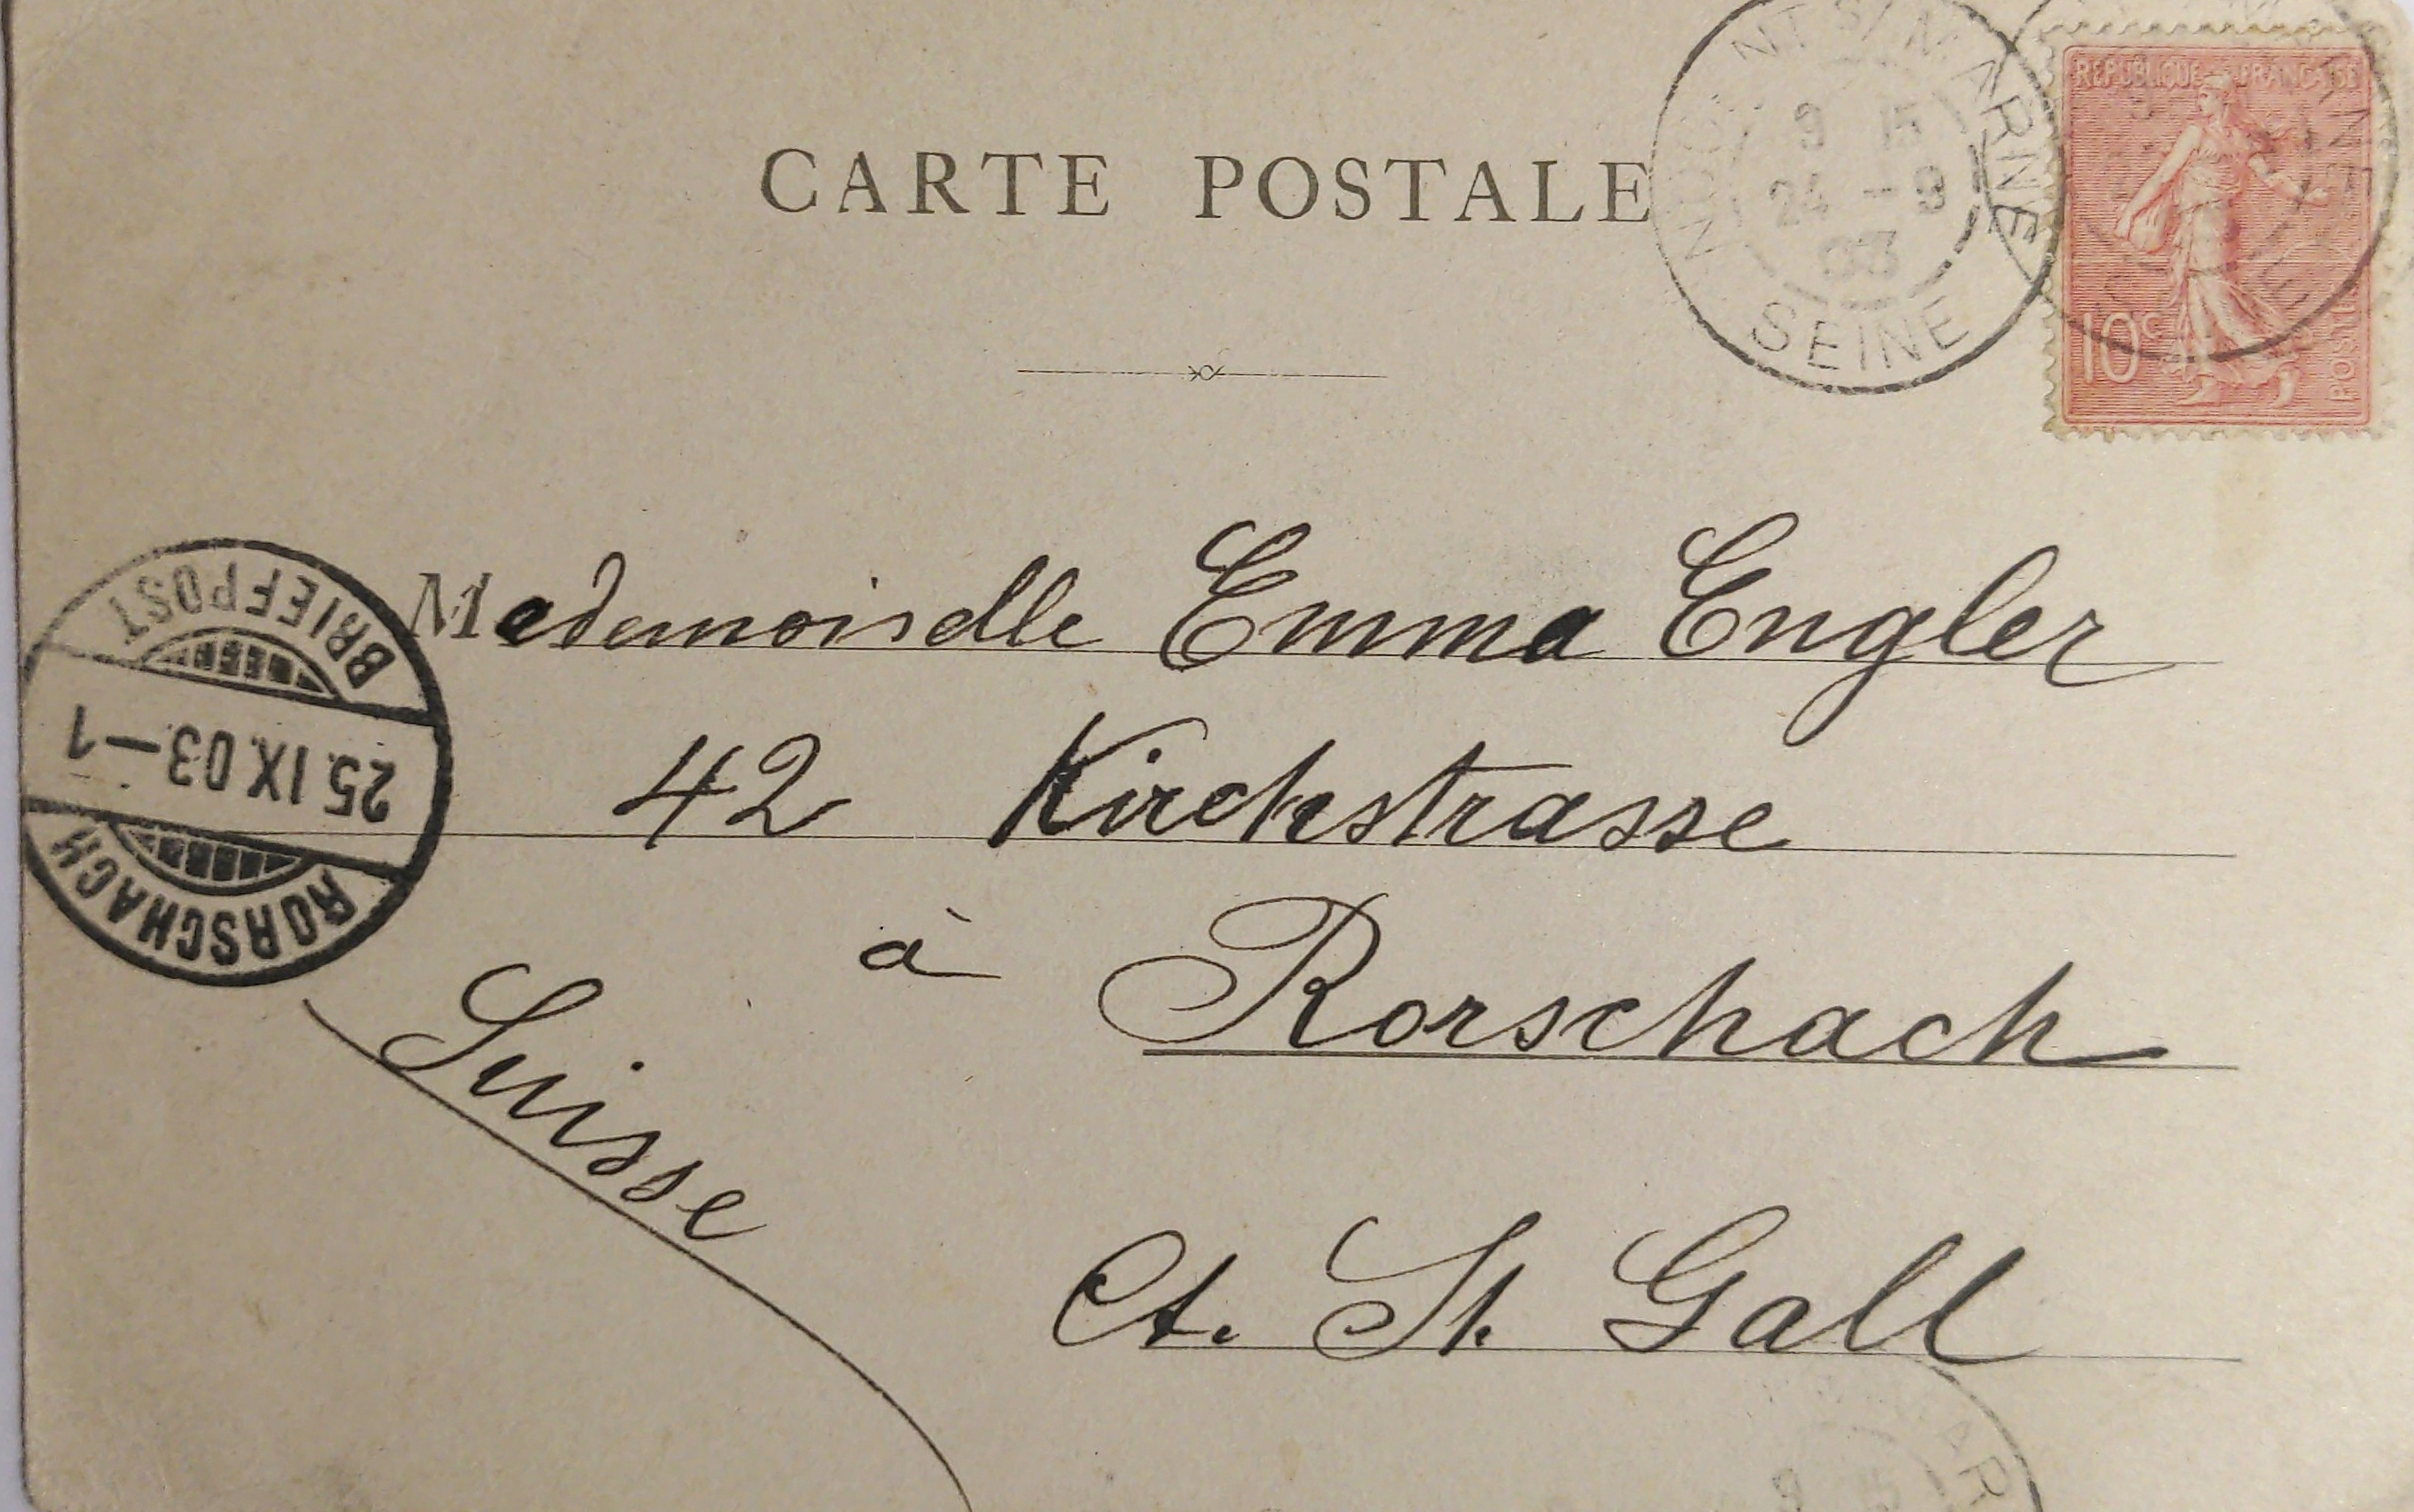 CARTE POSTALE
NOGENT S/ MARNE
9 15
24 - 9
03
SEINE
REPUBLIQUE FRANCAISE
10c
POSTES
BRIEFPOST
25.IX.03.-1
RORSCHACH
Mademoiselle Emma Engler
42 Kirchstrasse
à Rorschach
Suisse
Ct. St. Gall